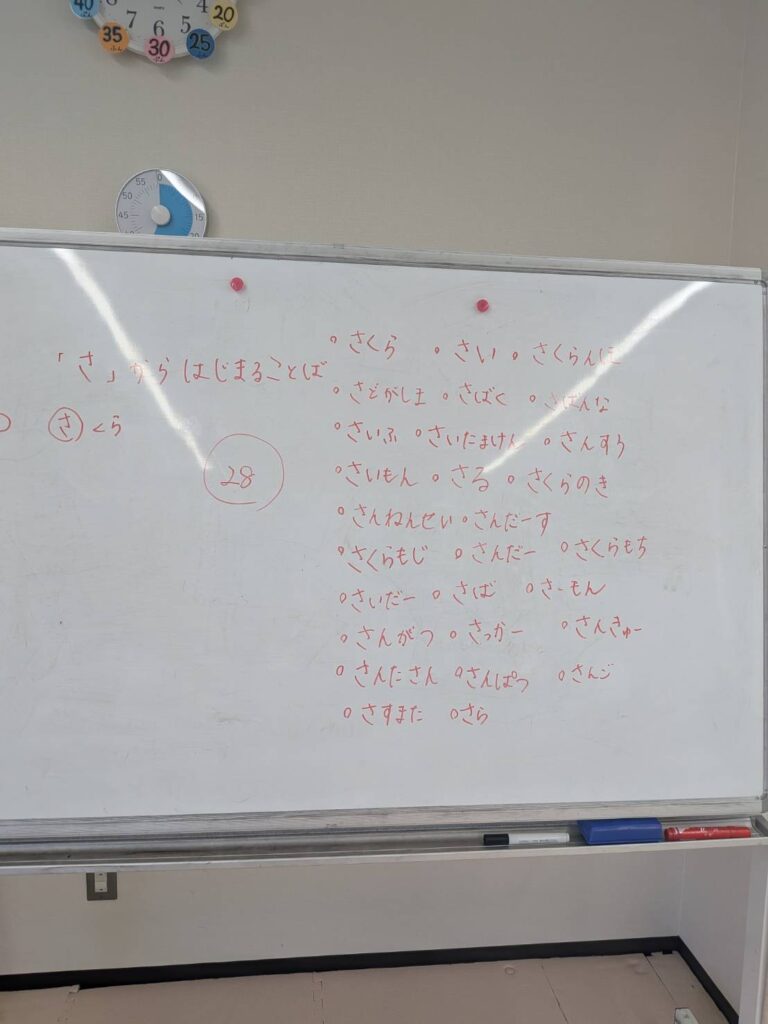 40 8 7 6 5 4 20
ぷん ぷん
35 30 25
ふん ぷん ふん
55 0
50
45 15
「さ」からはじまることば
さくら
28
○さくら ○さい ○さくらんぼ
○さどがしま ○さばく ○さばんな
○さいふ ○さいたまけん ○さんすう
○さいもん ○さる ○さくらのき
○さんねんせい ○さんだーす
○さくらもじ ○さんだー ○さくらもち
○さいだー ○さば ○さーもん
○さんがつ ○さっかー ○さんきゅー
○さんたさん ○さんぱつ ○さんご
○さすまた ○さら